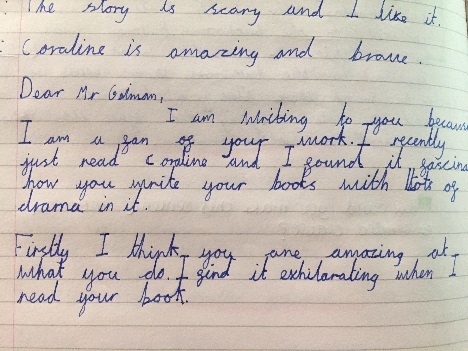 The story is scary and I like it.
Coraline is amazing and brave.
Dear Mr Gaiman,
I am writing to you because
I am a fan of your work. I recently
just read Coraline and I found it fascina
how you write your books with lots of
drama in it.
Firstly I think you are amazing at
what you do. I find it exhilarating when I
read your book.